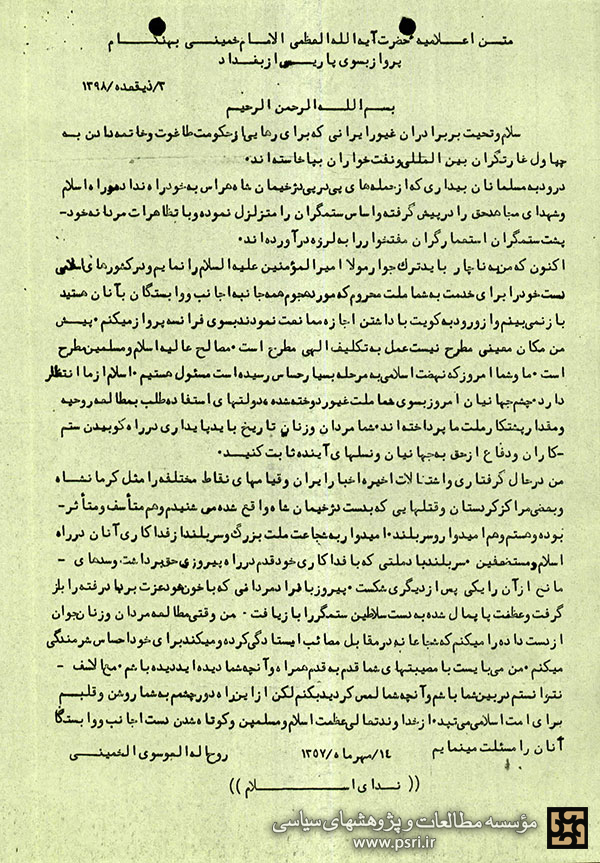 متن اعلامیه حضرت آیه الله العظمی الامام خمینی بهنگام
پرواز بسوی پاریس از بغداد
۳/ذیقعده/۱۳۹۸
بسم الله الرحمن الرحیم
سلام و تحیت بر برادران غیور ایرانی که برای رهایی از حکومت طاغوت و خاتمه دادن به
چپاول غارتگران بین المللی و نفت خواران بپا خاسته اند.
درود به مسلمانان بیداری که از حمله های پی در پی دژخیمان شاه هراس به خود راه نداده و راه اسلام
و شهدای مجاهد حق را در پیش گرفته و اساس ستمگران را متزلزل نموده و با تظاهرات مردانه خود-
پشت ستمگران استعمارگران مفتخوار را به لرزه در آورده اند.
اکنون که من به ناچار باید ترك جوار مولا امیرالمؤمنین علیه السلام را نمایم و در کشورهای اسلامی
دست خود را برای خدمت به شما ملت محروم که مورد هجوم همه جانبه اجانب و وابستگان بآنان هستید
باز نمی بینم و از ورود به کویت با داشتن اجازه ممانعت نمودند بسوی فرانسه پرواز میکنم. پیش
من مکان معینی مطرح نیست عمل به تکلیف الهی مطرح است. مصالح عالیه اسلام و مسلمین مطرح
است. ما و شما امروز که نهضت اسلامی به مرحله بسیار حساس رسیده است مسئول هستیم. اسلام از ما انتظار
دارد. چشم جهانیان امروز بسوی شما ملت غیور دوخته شده دولتهای استفاده طلب به مطالعه روحیه
و مقدار پشتکار ملت ما پرداخته اند. شما مردان و زنان تاریخ باید پایداری در راه کوبیدن ستم
-کاران و دفاع از حق به جهانیان و نسلهای آینده ثابت کنید.
من در حال گرفتاری و اشتغالات اخیره اخبار ایران و قیامهای نقاط مختلفه را مثل کرمانشاه
و بعضی مراکز کردستان و قتلهایی که بدست دژخیمان شاه واقع شده می شنیدم و هم متأسف و متأثر-
بوده و هستم و هم امیدوار و سربلند. امیدوار به شجاعت ملت بزرگ و سربلند از فداکاری آنان در راه
اسلام و مستضعفین. سربلند باد ملتی که با فداکاری خود قدم در راه پیروزی حق برداشت و سدهای-
مانع از آن را یکی پس از دیگری شکست. پیروز باد مردمانی که با خون خود عزت بر باد رفته را باز
گرفت و عظمت پامال شده به دست سلاطین ستمگر را بازیافت- من وقتی مطالعه مردان و زنان جوان
از دست داده را میکنم که شجاعانه در مقابل مصائب ایستادگی کرده و میکند برای خود احساس شرمندگی
میکنم. من می بایست با مصیبتهای شما قدم به قدم همراه و آنچه شما دیده اید دیده باشم. مع الاسف-
نتوانستم در بین شما باشم و آنچه شما لمس کردید بکنم لکن از این راه دور چشم به شما روشن و قلبم
برای امت اسلامی می تپد. از خداوند تعالی عظمت اسلام و مسلمین و کوتاه شدن دست اجانب و وابستگان
آنان را مسئلت مینمایم
۱۴/مهرماه/۱۳۵۷ روح اله الموسوی الخمینی
(( ندای اسلام ))
مؤسسه مطالعات و پژوهشهای سیاسی
www.psri.ir